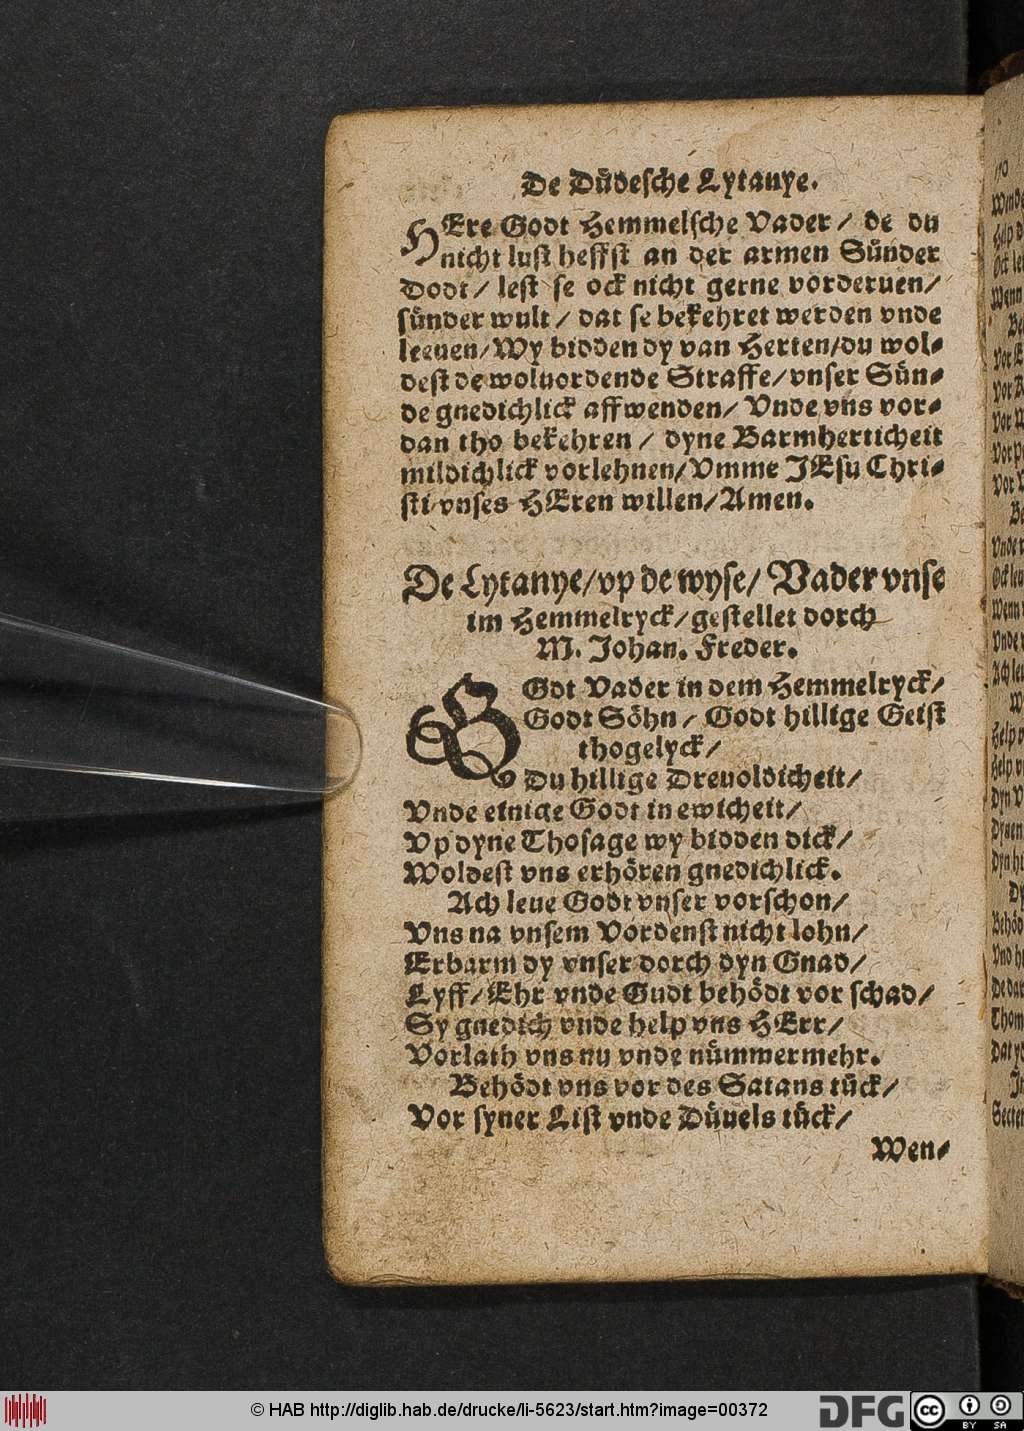 De Düdesche Lytanye.
HEre Godt Hemmelsche Vader / de du
nicht lust heffst an der armen Sünder
Dodt / lest se ock nicht gerne vorderuen /
sünder wult / dat se bekehret werden vnde
leeuen / Wy bidden dy van Herten / du wol-
dest de woluordende Straffe / vnser Sün-
de gnedichlick affwenden / Vnde vns vor-
dan tho bekehren / dyne Barmherticheit
mildichlick vorlehnen / Vmme JEsu Chri-
sti vnses HEren willen / Amen.
De Lytanye / vp de wyse / Vader vnse
im Hemmelryck / gestellet dorch
M. Johan. Freder.
GOdt Vader in dem Hemmelryck /
Godt Söhn / Godt hillige Geist
thogelyck /
Du hillige Dreuoldicheit /
Vnde einige Godt in ewicheit /
Vp dyne Thosage wy bidden dick /
Woldest vns erhören gnedichlick.
Ach leue Godt vnser vorschon /
Vns na vnsem Vordenst nicht lohn /
Erbarm dy vnser dorch dyn Gnad /
Lyff / Ehr vnde Gudt behödt vor schad /
Sy gnedich vnde help vns HErr /
Vorlath vns nu vnde nümmermehr.
Behödt vns vor des Satans tück /
Vor syner List vnde Düuels tück /
Wen-
© HAB http://diglib.hab.de/drucke/li-5623/start.htm?image=00372
DFG
cc BY SA